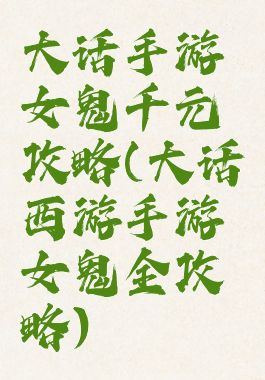 大话手游
女鬼千元
攻略(大话
西游手游
女鬼全攻
略)